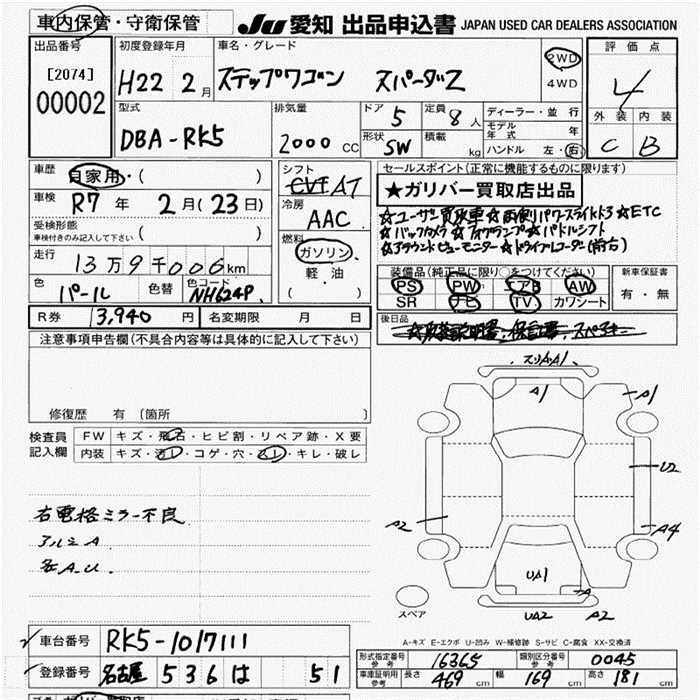 車内保管・守衛保管
JU 愛知 出品申込書 JAPAN USED CAR DEALERS ASSOCIATION
出品番号
[2074]
00002
初度登録年月
H22 2月
車名・グレード
ステップワゴン スパーダZ
2WD
4WD
評価点
4
外装 内装
C B
型式
DBA-RK5
排気量
2000 CC
ドア 5
形状 SW
定員 8人
積載 kg
ディーラー・並行
モデル年式 年
ハンドル 左・右
車歴
自家用・( )
車検
R7年 2月(23日)
受検形態
車検付きのみ記入して下さい ( )
走行
13万9千006km
色 パール
色替
色コード NH624P
シフト
CVT AT
冷房
AAC
燃料
ガソリン
軽・油
( )
セールスポイント(正常に機能するものに限ります)
★ガリバー買取店出品
☆ユーザー買取車☆両側パワースライドドア☆ETC
☆バックカメラ☆フォグランプ☆パドルシフト
☆アラウンドビューモニター☆ドライブレコーダー(前方)
装備品(純正品に限り○をつけてください)
PS PW エアB AW
SR ナビ TV カワシート
新車保証書
有・無
R券 3,940円
名変期限 月 日
後日品
取扱説明書・保証書・スペアキー
注意事項申告欄(不具合内容等は具体的に記入して下さい)
修復歴 有 (箇所
検査員記入欄
FW キズ・飛石・ヒビ割・リペア跡・X要
内装 キズ・汚レ・コゲ・穴・スレ・キレ・破レ
右電格ミラー不良
アルミA
各A.U.
スリA・A1
A1
A1
U2
A2
A4
UA1
A
UA2
A2
スペア
A-キズ E-エクボ U-凹み W-補修跡 S-サビ C-腐食 XX-交換済
車台番号 RK5-1017111
登録番号 名古屋 536 は 51
形式指定番号 参考 16365
類別区分番号 参考 0045
車庫証明用 参考 長さ 469cm 幅 169cm 高さ 181cm